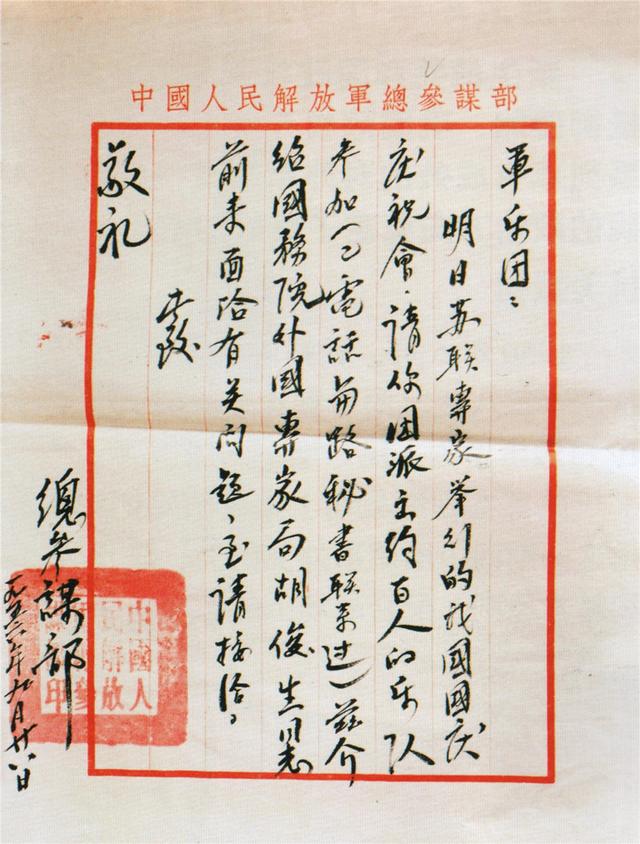 中國人民解放軍總參謀部
軍乐团：
明日苏联專家举行的我國國庆
庆祝會，請你团派出约百人的乐队
参加（已電話与路秘書联系过）兹介
绍國務院外國專家局胡俊生同志
前来面洽有关问题，至請接洽。
此致
敬礼
總参謀部
一九五六年九月廿八日
中國人
解放
參
印